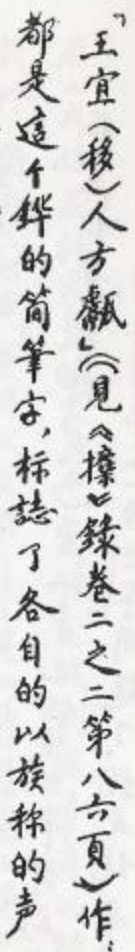 「王宜(移)人方甗」(見《攈》錄卷二之二第八六頁)作:
都是這个鏵的简筆字,标誌了各自的以族称的声